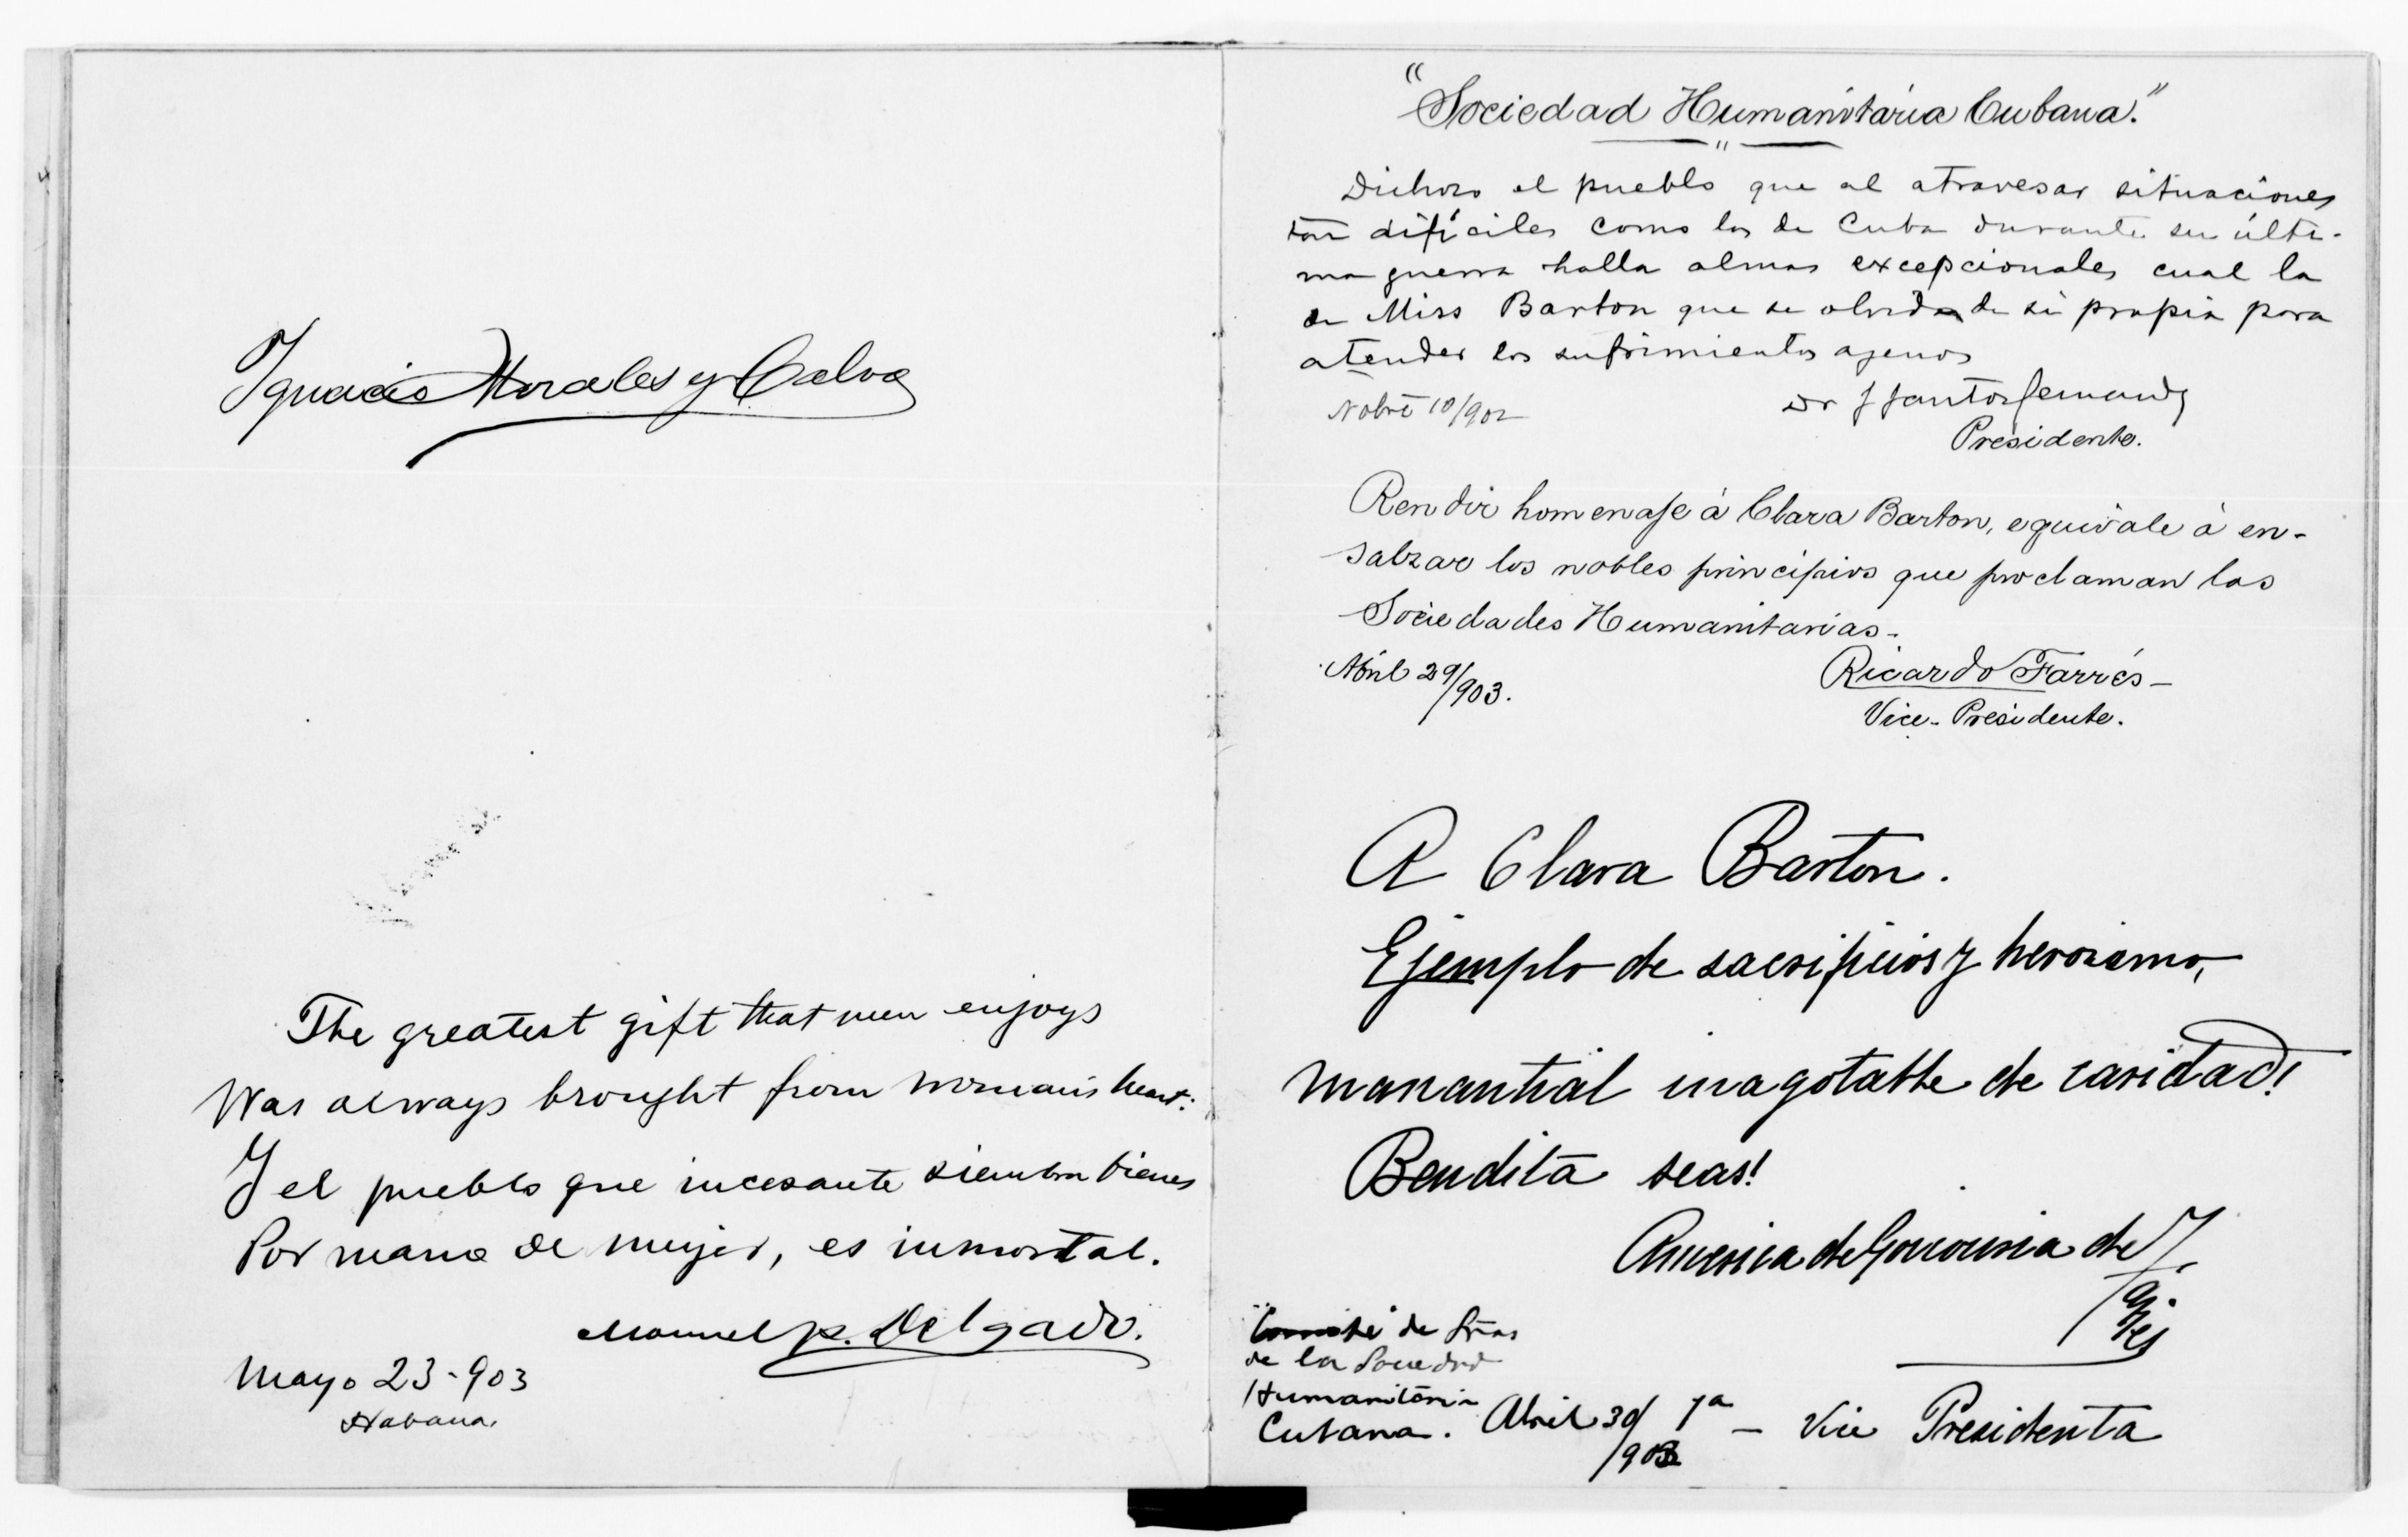 Ignacio Morales y Calvo
The greatest gift that men enjoys
Was always brought from woman's heart:
Y el pueblo que incesante siembra bienes
Por mano de mujer, es inmortal.
Manuel P. Delgado.
Mayo 23-903
Habana.
"Sociedad Humanitaria Cubana."
Dichoso el pueblo que al atravesar situaciones
tan difíciles como las de Cuba durante su últi-
ma guerra halla almas excepcionales cual la
de Miss Barton que se olvida de si propia para
atender los sufrimientos agenos
Nobre 10/902
Dr J Santos Fernandz
Presidente.
Rendir homenaje á Clara Barton, equivale á en-
salzar los nobles principios que proclaman las
Sociedades Humanitarias.
Abril 29/903.
Ricardo Farrés
Vice-Presidente.
A Clara Barton.
Ejemplo de sacrificios y heroismo,
manantial inagotable de caridad!
Bendita seas!
America de Goicouria de
"Comité" de Sras
de la Sociedad
Humanitaria
Cubana. Abril 30/903 1a - Vice Presidenta